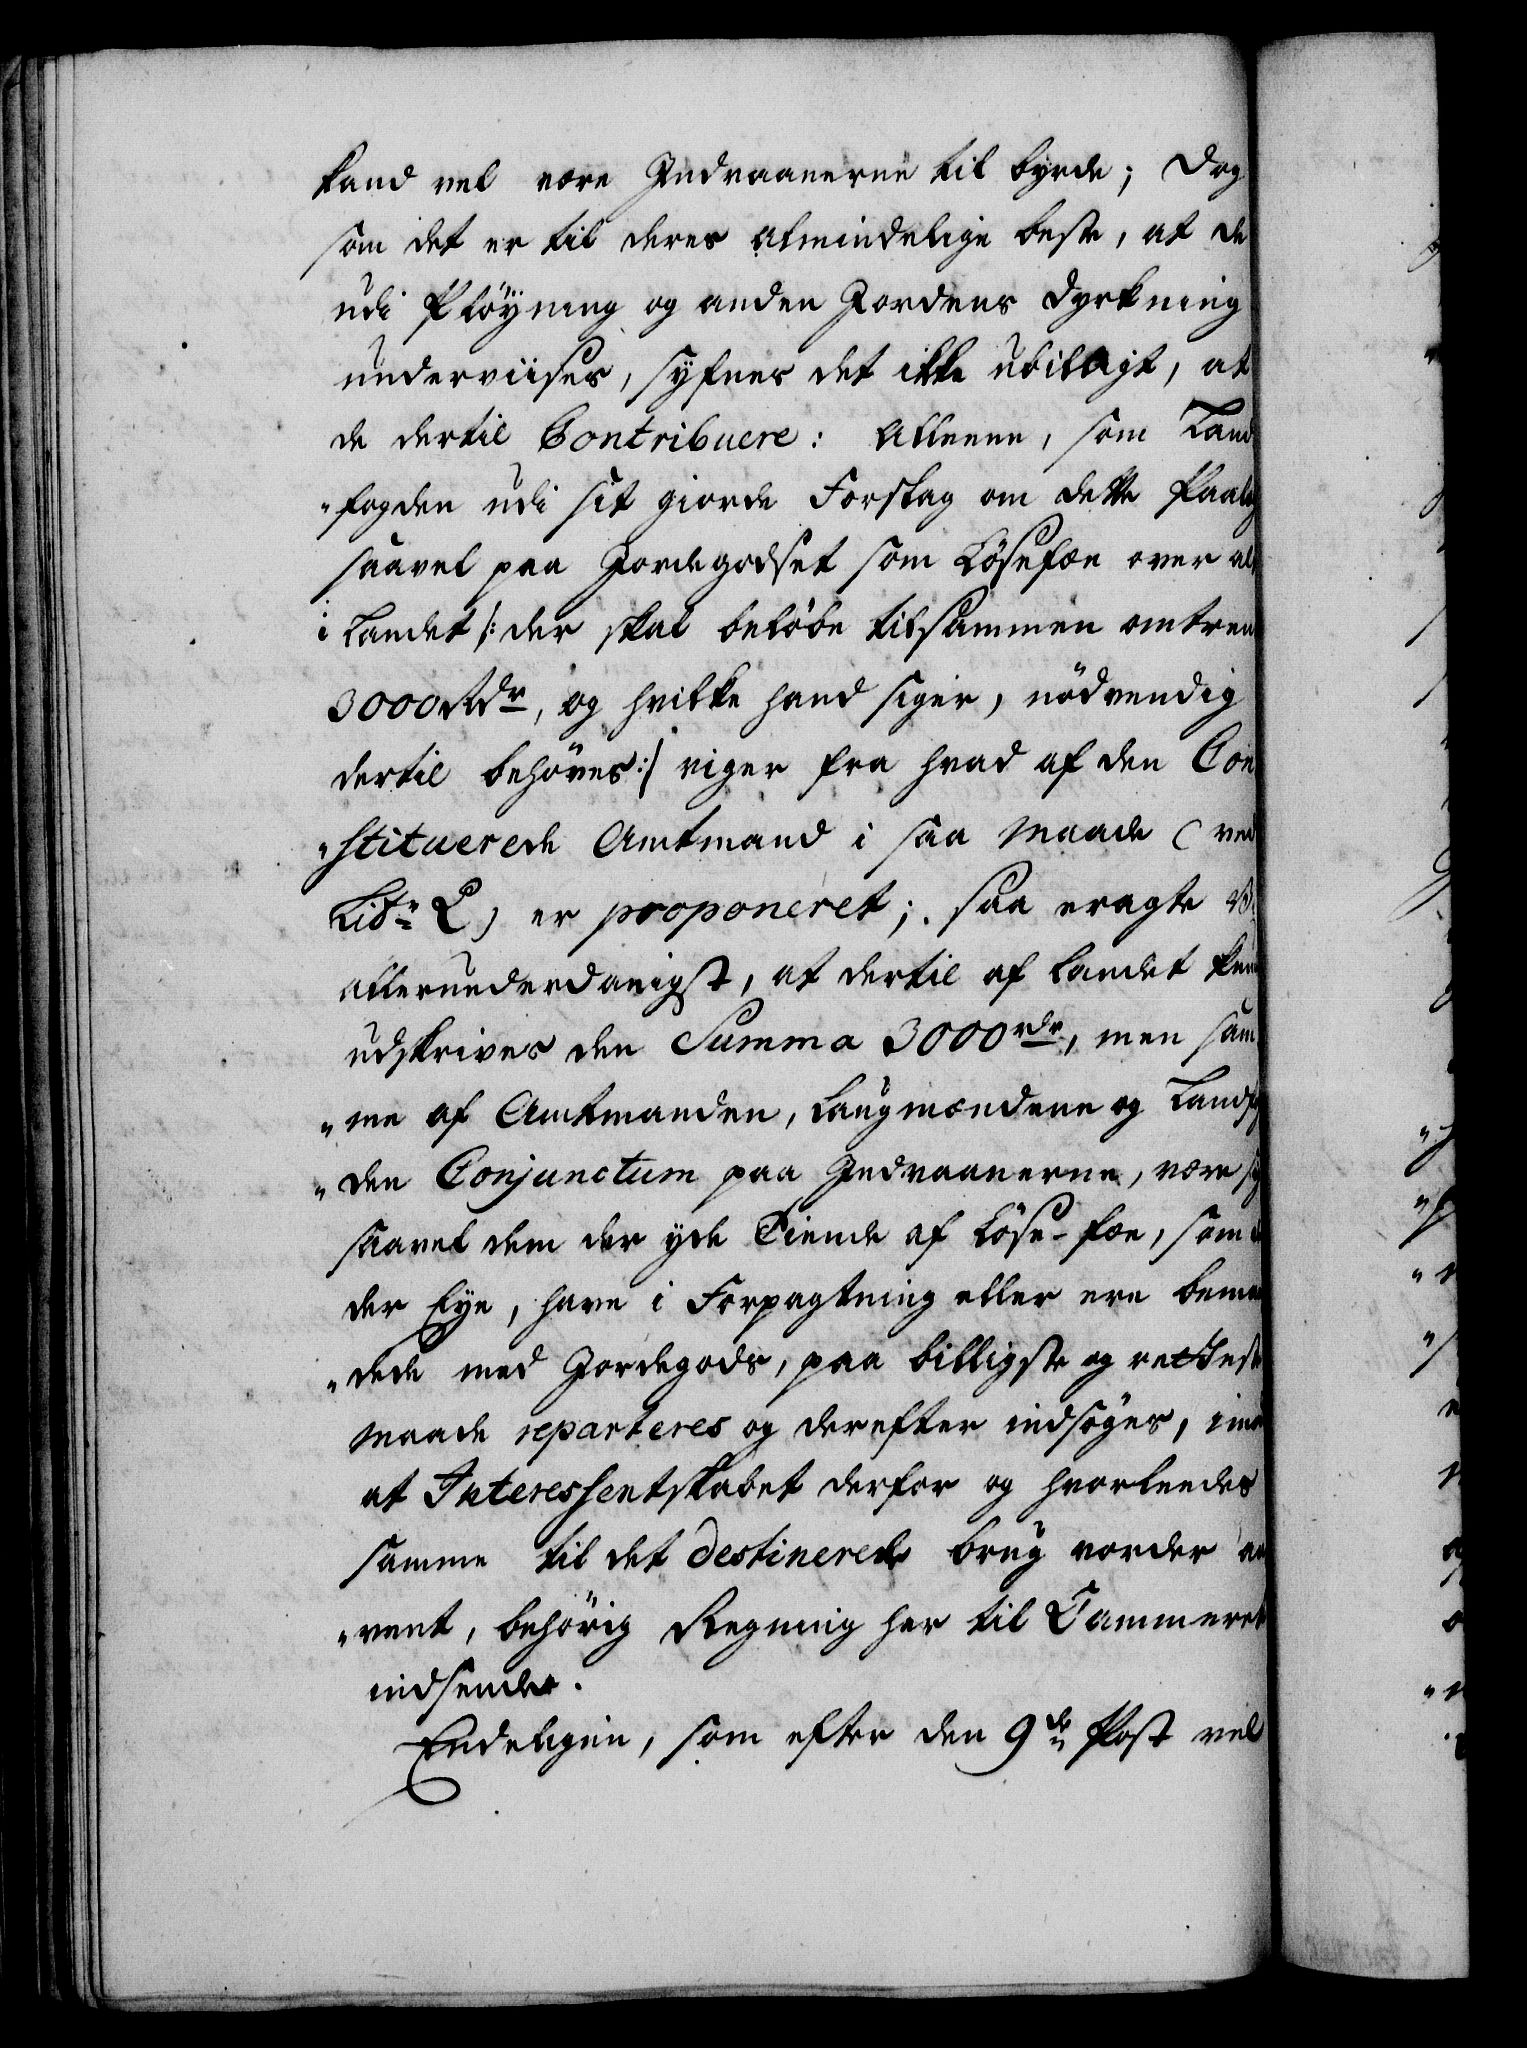 kand vel være Indvaanerne til byrde; Dog
som det er til deres almindelige beste, at de
udi Pløyning og anden Jordens Dyrkning
underviises, synes det ikke ubilligt, at
de dertil Contribuere: Alleene, som Land
"fogden udi sit giorde Forslag om dette Paalæg
saavel paa Jordegodset som Løsefæe over alt
i Landet /: der skal beløbe tilsammen omtrent
3000 Rdr, og hvilke hand siger, nødvendig
dertil behøves :/ viger fra hvad af den Con
"stituerede Amtmand i saa Maade (ved
Litr: L) er proponeret; saa eragte Vi
allerunderdanigst, at dertil af Landet kand
udskrives den Summa 3000 rdr, men sam
"me af Amtmanden, Laugmændene og Landfog
"den Conjunctum paa Indvaanerne, være sig
saavel dem der yde Tiende af Løse-fæe, som
der Eye, have i Forpagtning eller ere bemæ
"dede med Jordegods, paa billigste og retteste
Maade reparteres og derefter indsøges, imod
at Interessentskabet derfor og hvorleedes
samme til det destinerede brug vorder an
"vent, behørig Regning her til Cammeret
indsender.
Endeligen, som efter den 9de Post vel